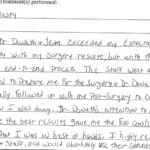 treatment(s) performed:
Dr Dowbak + Team exceeded my expectations
only with my surgery results, but with the
end-to-end process. The staff were
to prepare me for the surgery + Dr Dowbak
followed up with me post-surgery to
I was doing. Dr Dowbak's attention to
the best results gave me the full
that I was in best of hands. I highly
+ Staff, and would absolutely use their services